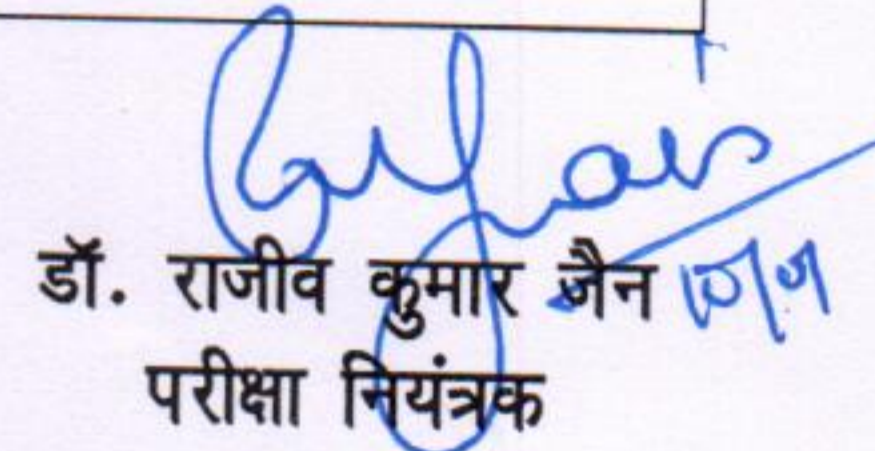 डॉ. राजीव कुमार जैन
परीक्षा नियंत्रक